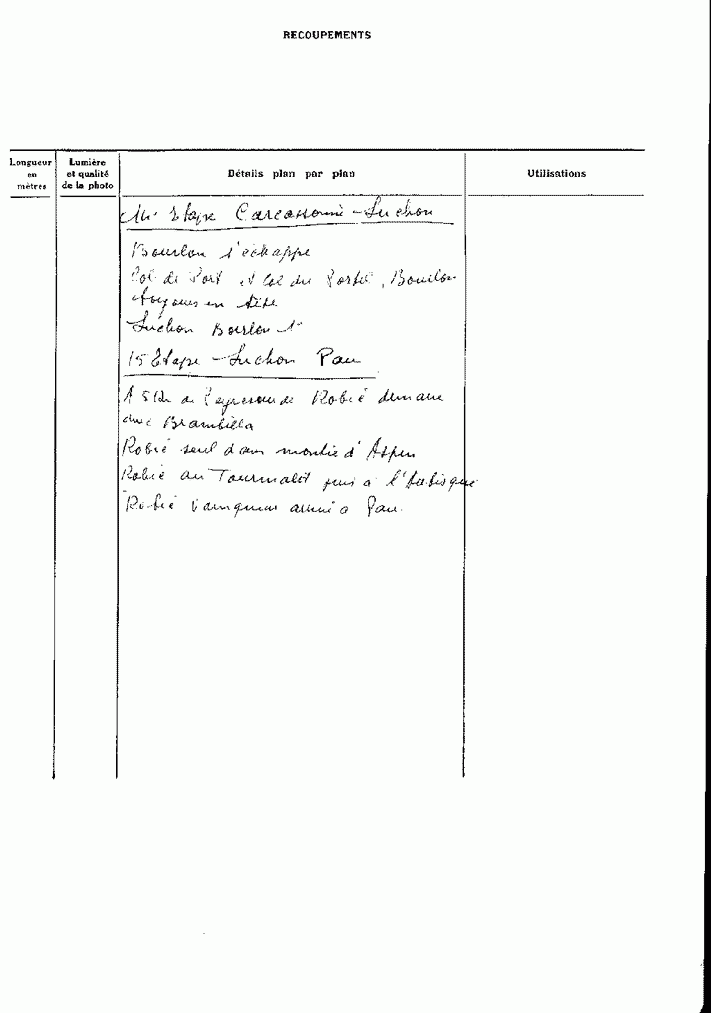 RECOUPEMENTS
Longueur
en
mètres
Lumière
et qualité
de la photo
Détails plan par plan
Utilisations
Etape Carcassonne - Luchon
Bourlon s'échappe
Col de Port et Col du Portet, Bourlon
toujours en tête
Luchon Bourlon 1er
15 Etape - Luchon Pau
A 5 Km de Peyresourde Robic démarre
avec Brambilla
Robic seul dans montée d'Aspin
Robic au Tourmalet puis à l'Aubisque
Robic vainqueur arrivé à Pau.